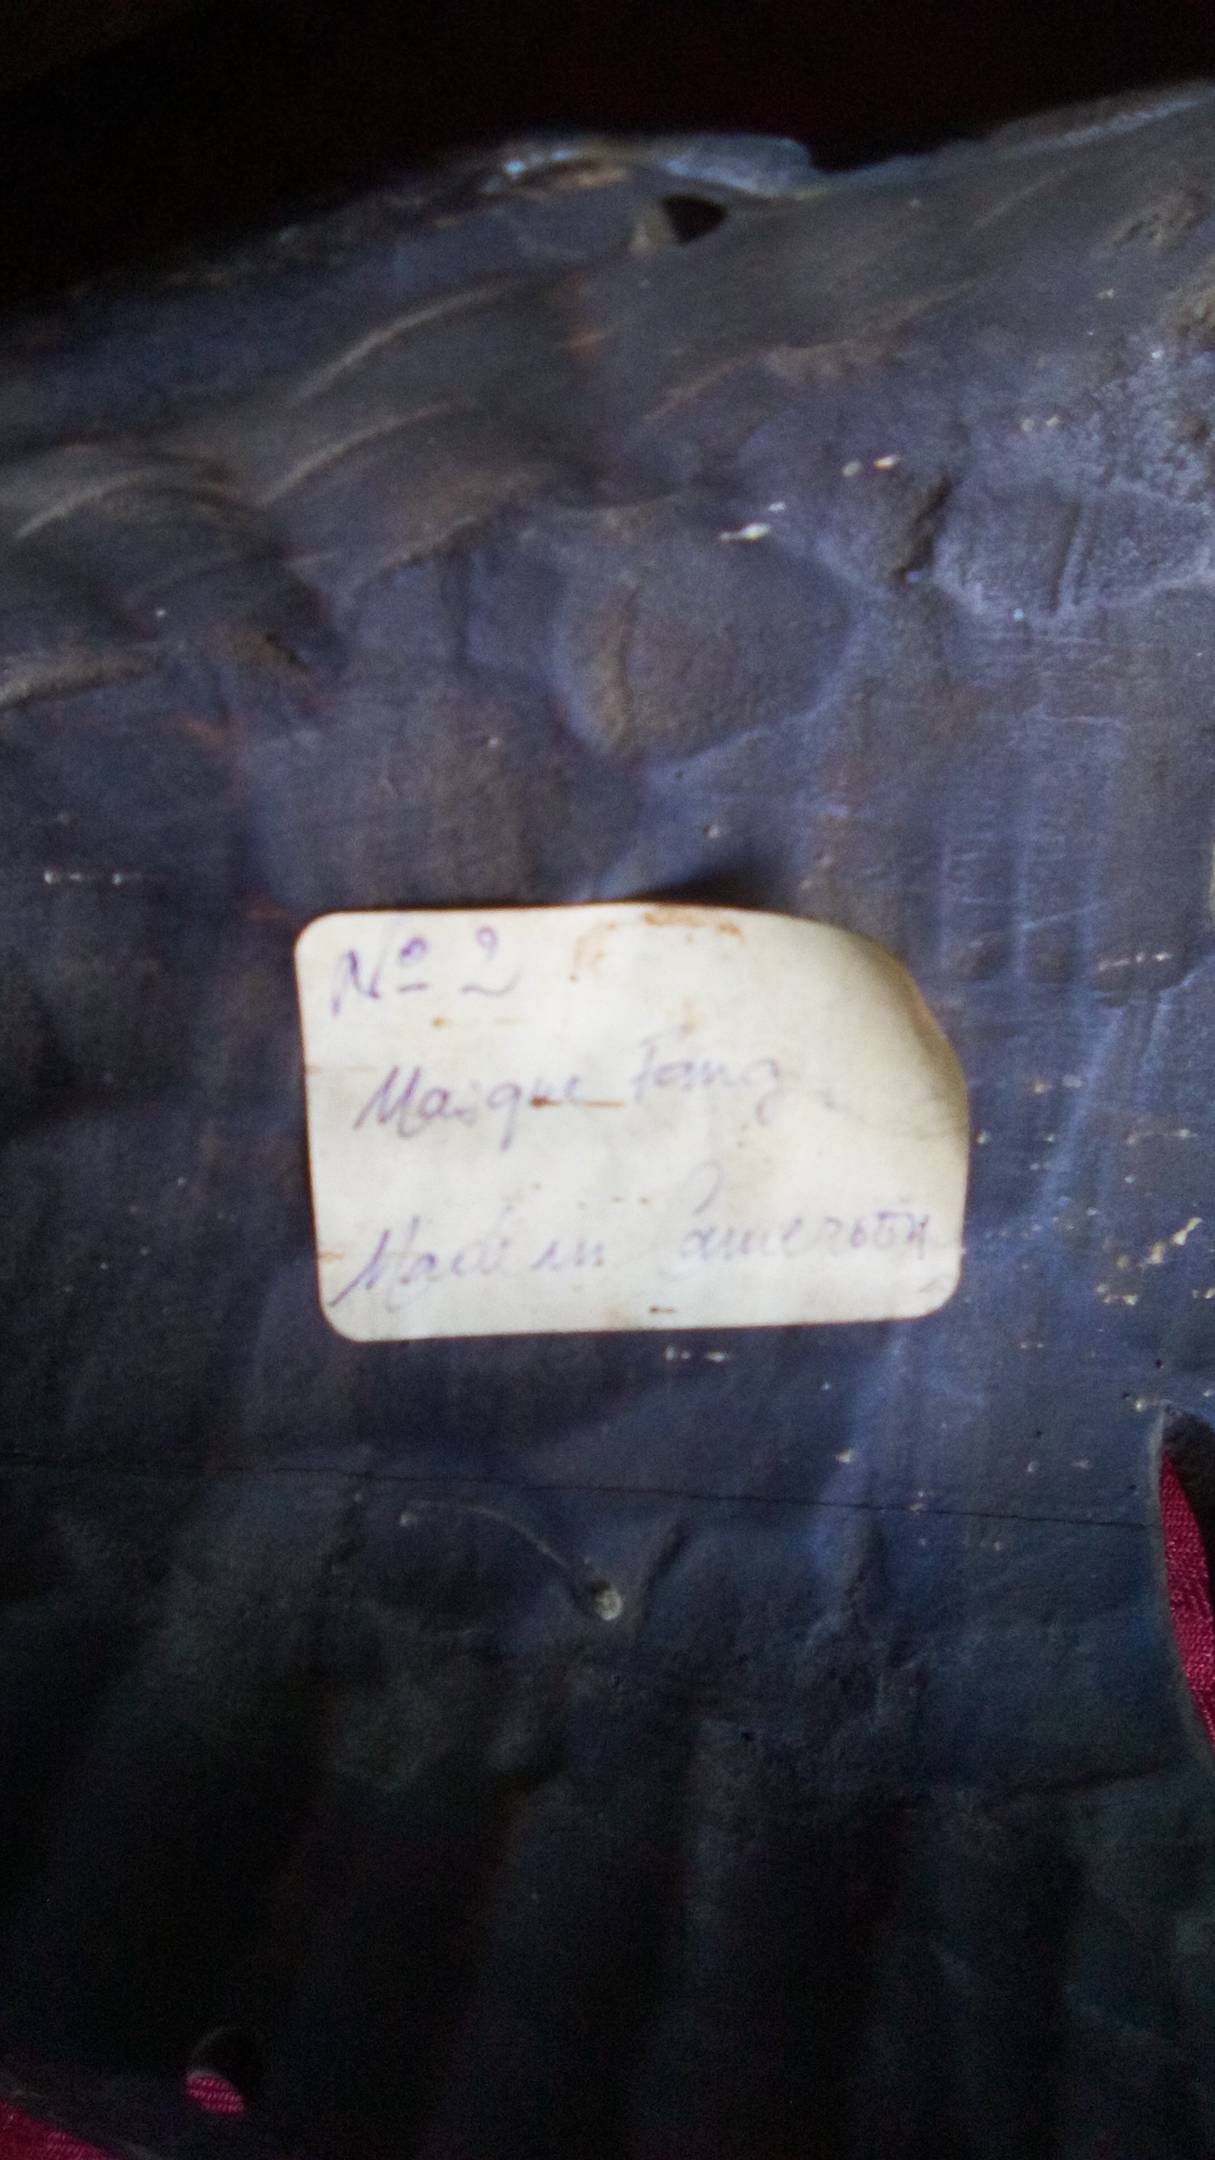 Nº 2
Masque Fang
Made in Cameroon